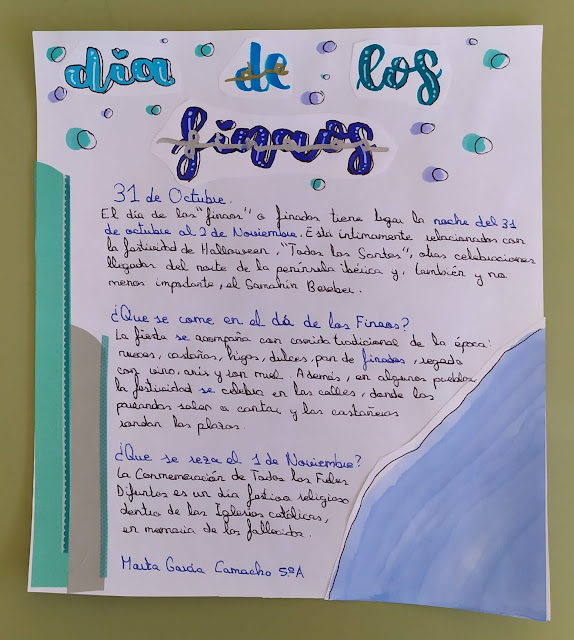 día de los
finaos
31 de Octubre.
El día de los "finaos" o finados tiene lugar la noche del 31
de octubre al 2 de Noviembre. Está íntimamente relacionados con
la festividad de Hallowean, "Todos los Santos", otras celebraciones
llegadas del norte de la península ibérica y, también y no
menos importante, el Samahín Bereber.
¿Que se come en el día de los Finaos?
La fiesta se acompaña con comida tradicional de la época:
nueces, castañas, higos, dulces, pan de finados, regada
con vino, anís y ron miel. Además, en algunos pueblos,
la festividad se celebra en las calles, donde las
parrandas salen a cantar y los castañeros
asan las plazas.
¿Que se reza el 1 de Noviembre?
La Conmemoración de Todos los Fieles
Difuntos es un día festivo religioso
dentro de las Iglesias católicas,
en memoria de los fallecidos.
Marta García Camacho 5.ºA